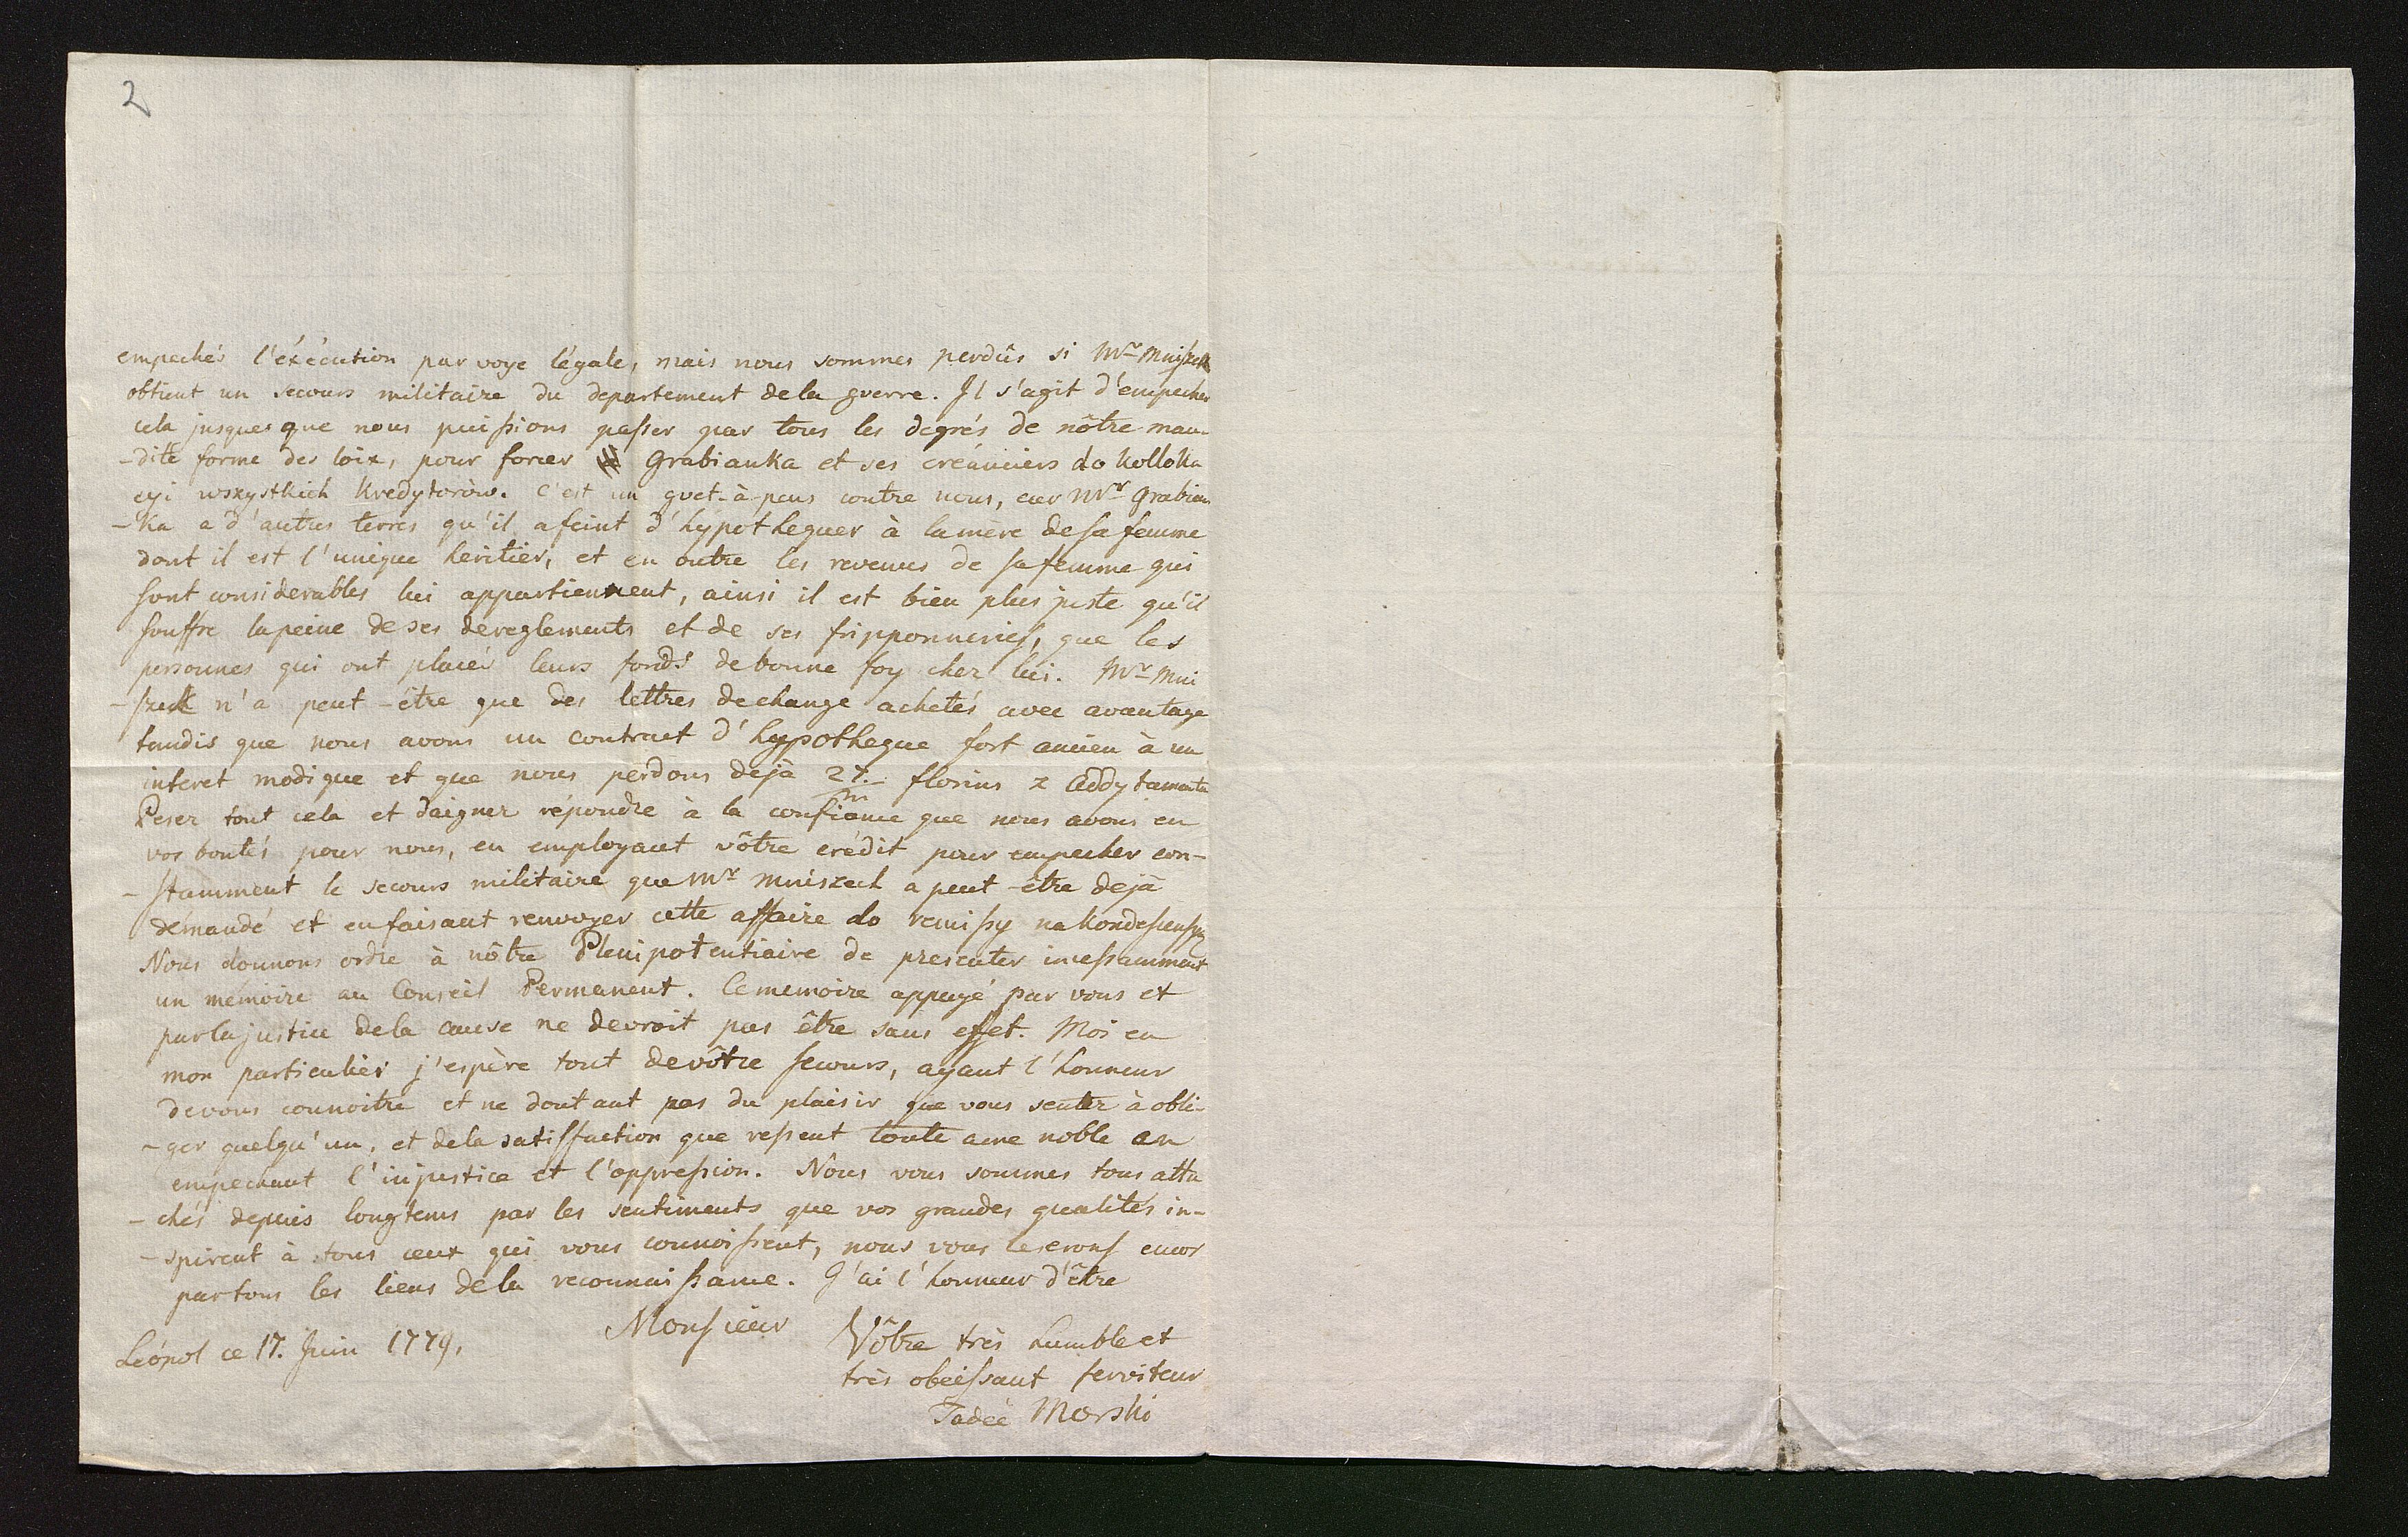 2
empechés l'éxécution par voye légale, mais nous sommes perdûs si Mr Mniszech
obtient un secours militaire du departement de la guerre. Il s'agit d'empecher
cela jusques que nous puissions passer par tous les degrés de nôtre mau-
-dite forme des loix, pour forcer Grabianka et ses créanciers do kolloka
cyi wszystkich Kredytorów. c'est un guet-à-pens contre nous, car Mr Grabian
-ka a d'autres terres qu'il a feint d'hypotheguer à la mère de sa femme
dont il est l'unique heritier, et en outre les revenus de sa femme qui
sont considerables lui appartiennent, ainsi il est bien plus juste qu'il
souffre la peine de ses dereglements et de ses fripponneries, que les
personnes qui ont placés leurs fonds de bonne foy chez lui. Mr Mni
-szech n'a peut-être que des lettres de change achetés avec avantage
tandis que nous avons un contract d'hypothegue fort ancien à un
interet modique et que nous perdons dejà 27. florins z addytamentu
m
Pesez tout cela et daignez répondre à la confiance que nous avons en
vos bontés pour nous, en employant vôtre crédit pour empecher con-
-stamment le secours militaire que Mr Mniszech a peut-être dejà
démandé et en faisant renvoyer cette affaire do remissy na kondessensyą
Nous donnons ordre à nôtre Plenipotentiaire de presenter incessamment
un mémoire au Conseil Permanent. Ce memoire appuyé par vous et
par la justice de la cause ne devroit pas être sans effet. Moi en
mon particulier j'espère tout de vôtre secours, ayant l'honneur
de vous connoitre et ne doutant pas du plaisir que vous sentez à obli-
-ger quelqu'un, et de la satisfaction que ressent toute ame noble en
empechant l'injustice et l'oppression. Nous vous sommes tous atta
-chés depuis longtems par les sentiments que vos grandes qualités in-
-spirent à tous ceux qui vous connoissent, nous vous le serons encor
par tous les liens de la reconnaissance. J'ai l'honneur d'être
Monsieur
Vôtre très humble et
très obéissant serviteur
Tadée Morski
Léopol ce 17. Juin 1779.